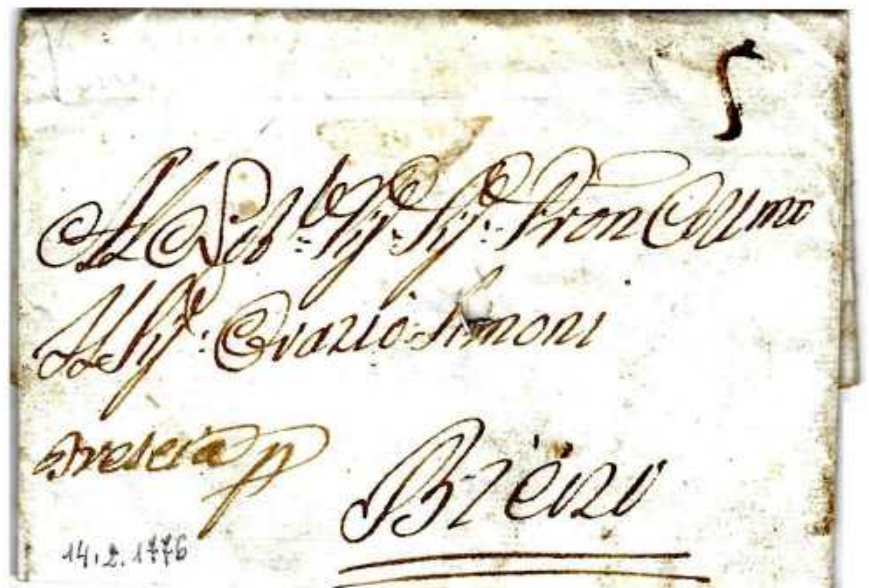 5
Al Nob:le Sig:r Sig:r Pron Coll:mo
Il Sig:r Orazio Simoni
Brescia p
Breno
14.2.1776